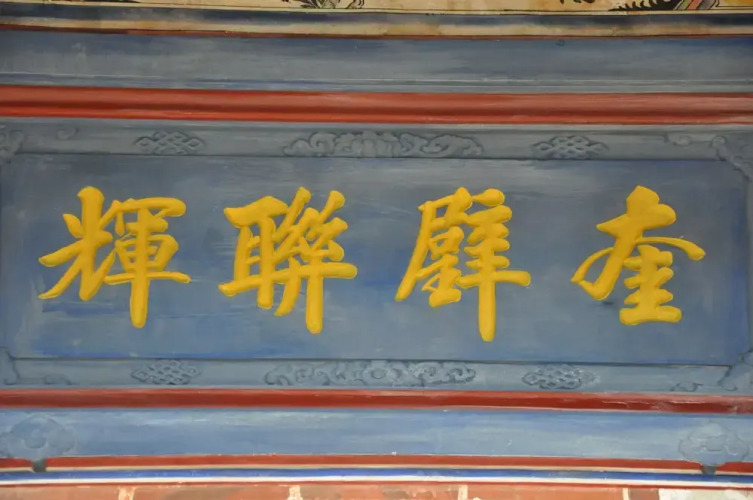 奎壁聯輝